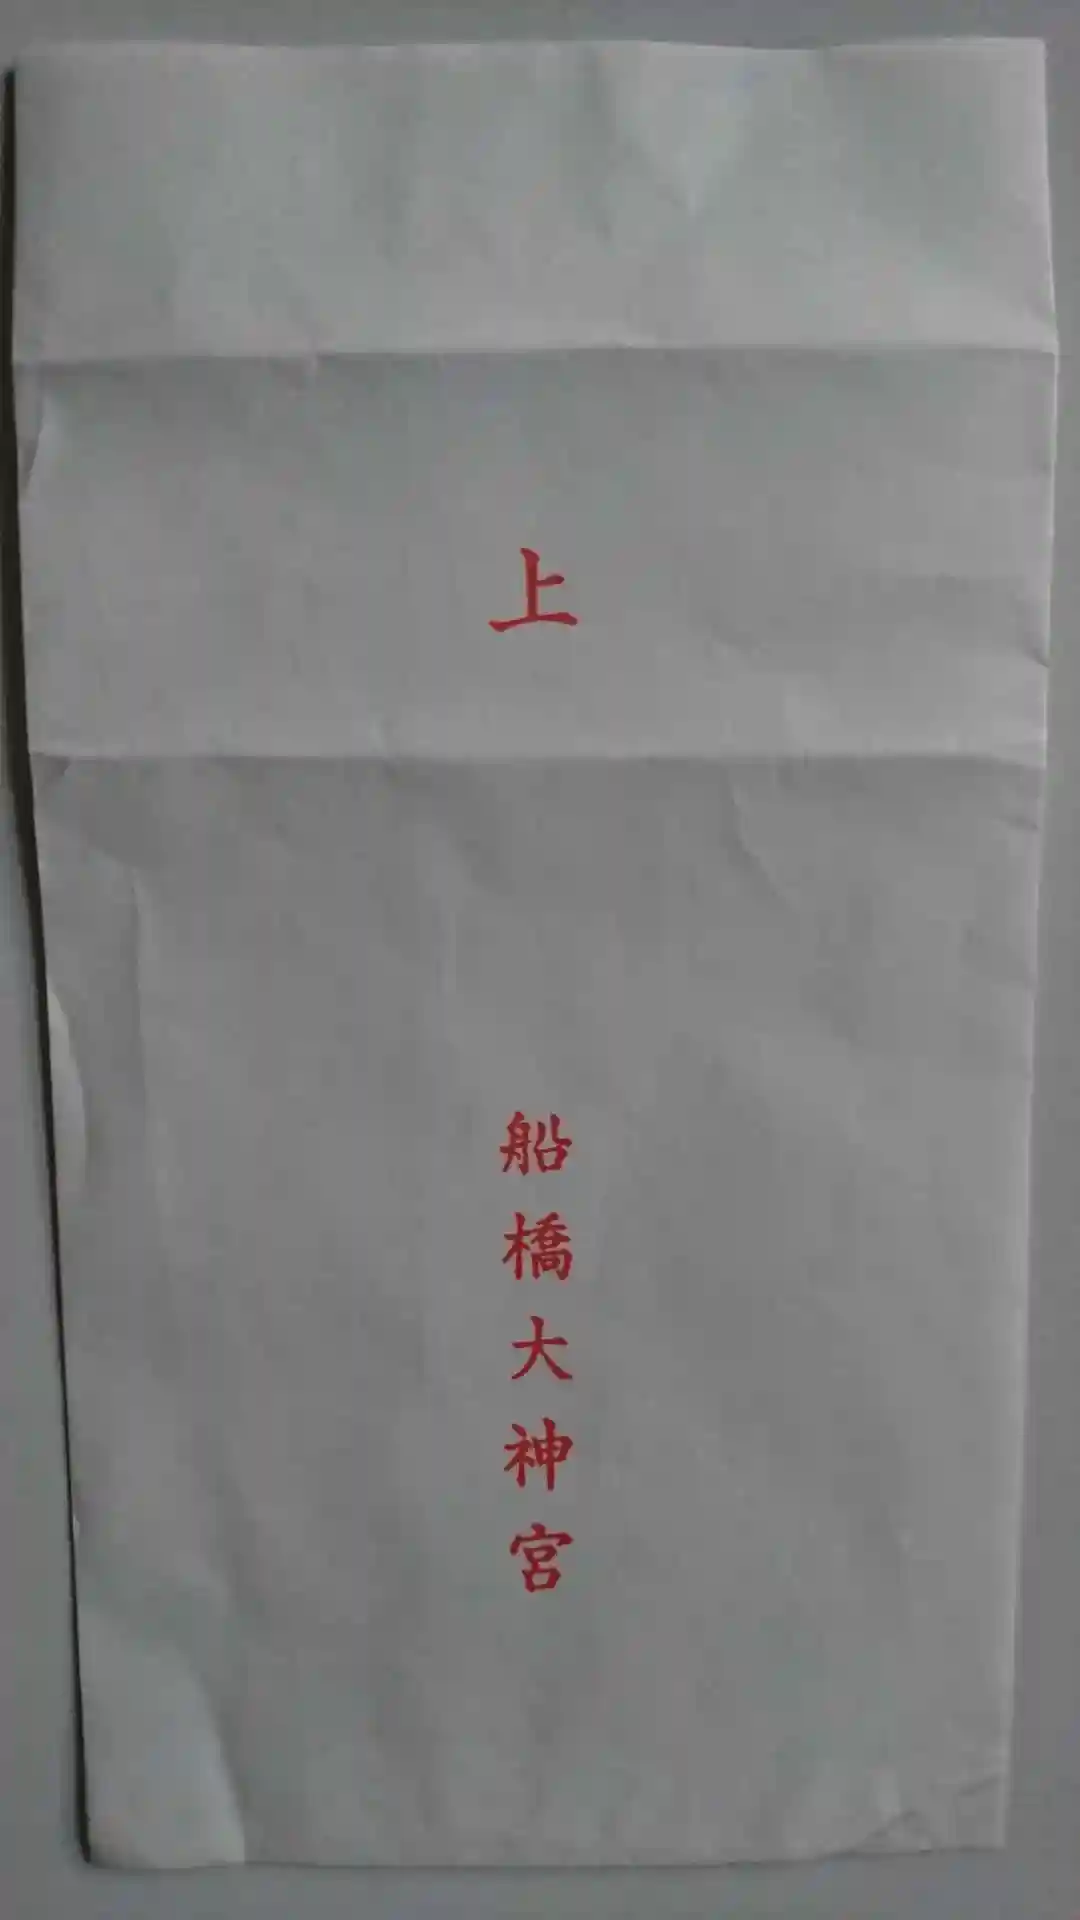 上
船橋大神宮